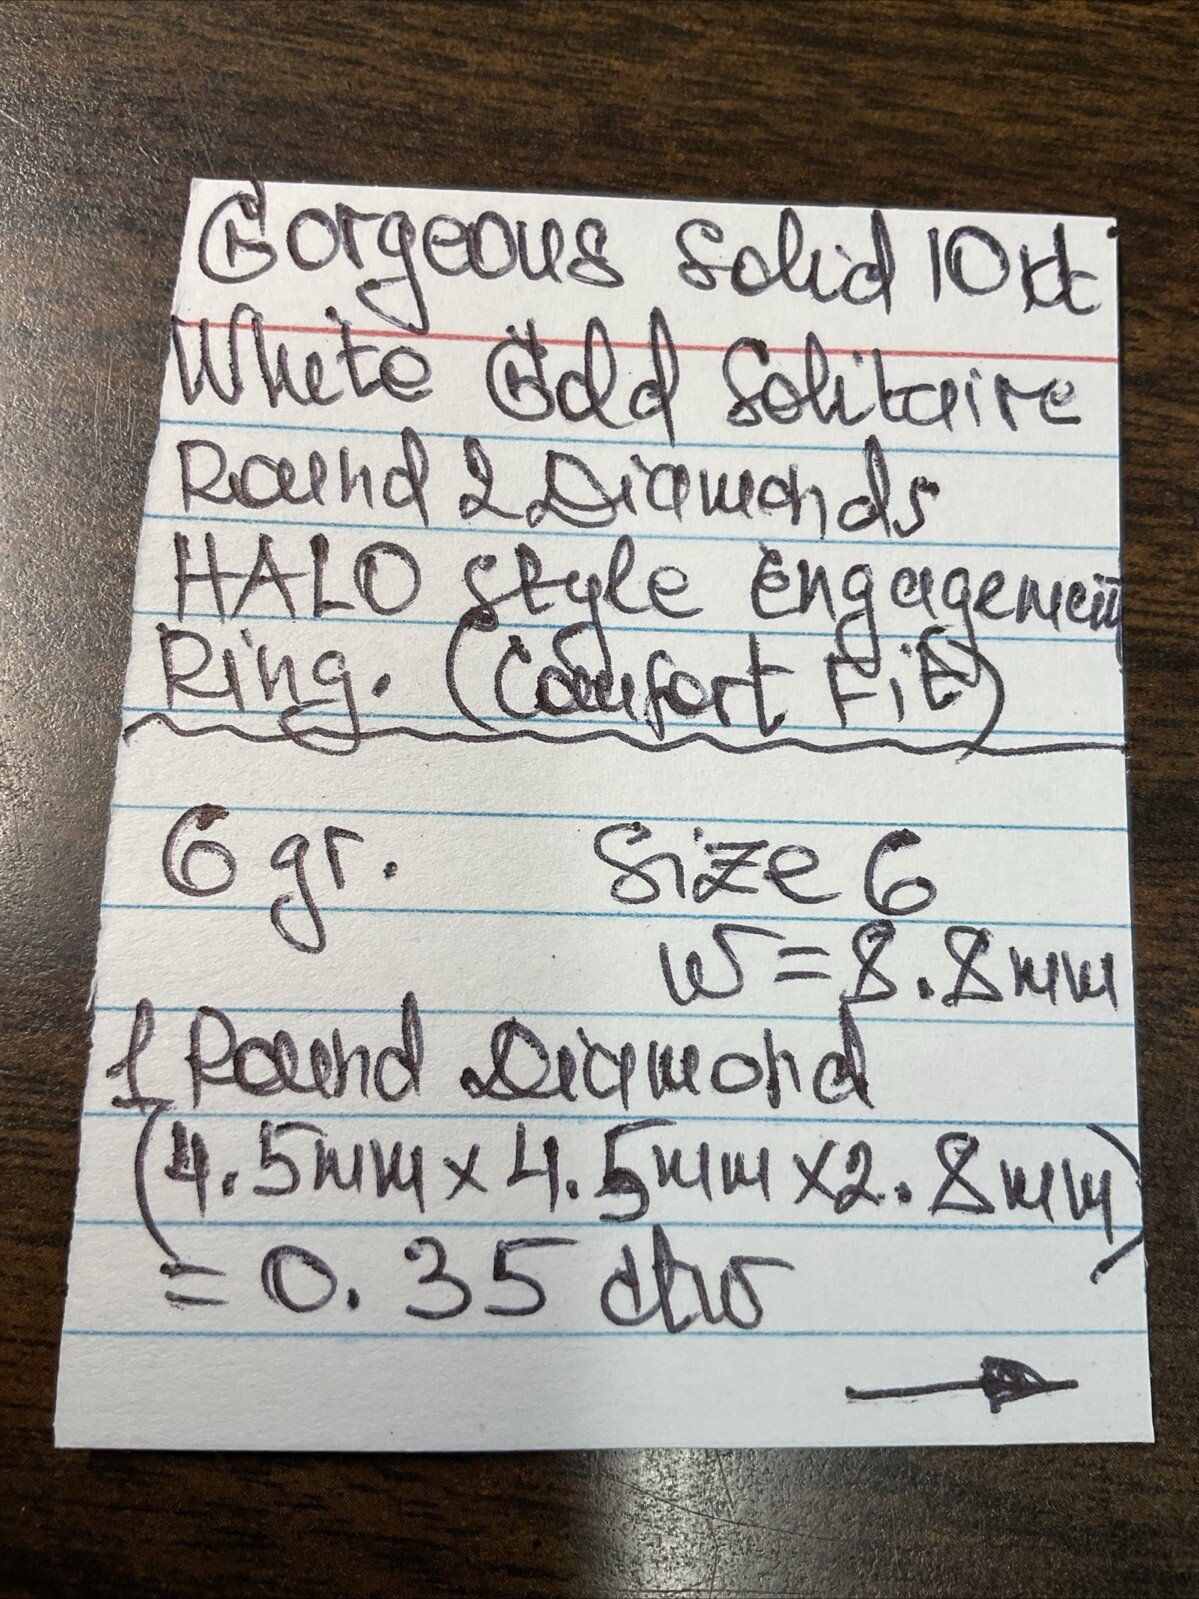 Gorgeous Solid 10kt
White Gold Solitaire
Round 2 Diamonds
HALO style Engagement
Ring. (Comfort Fit)
6 gr. Size 6
w = 8.8mm
1 Round Diamond
(4.5mm x 4.5mm x 2.8mm)
= 0.35 ctw